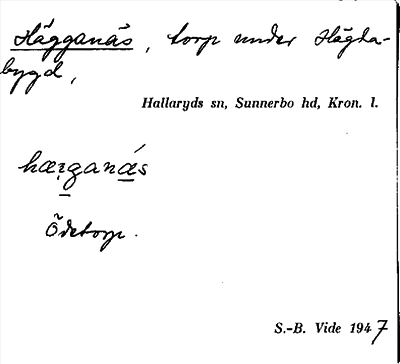 Hägganäs, torp under Högda-
bygd,
Hallaryds sn, Sunnerbo hd, Kron. l.
hærganás
Ödetorp.
S.-B. Vide 1947